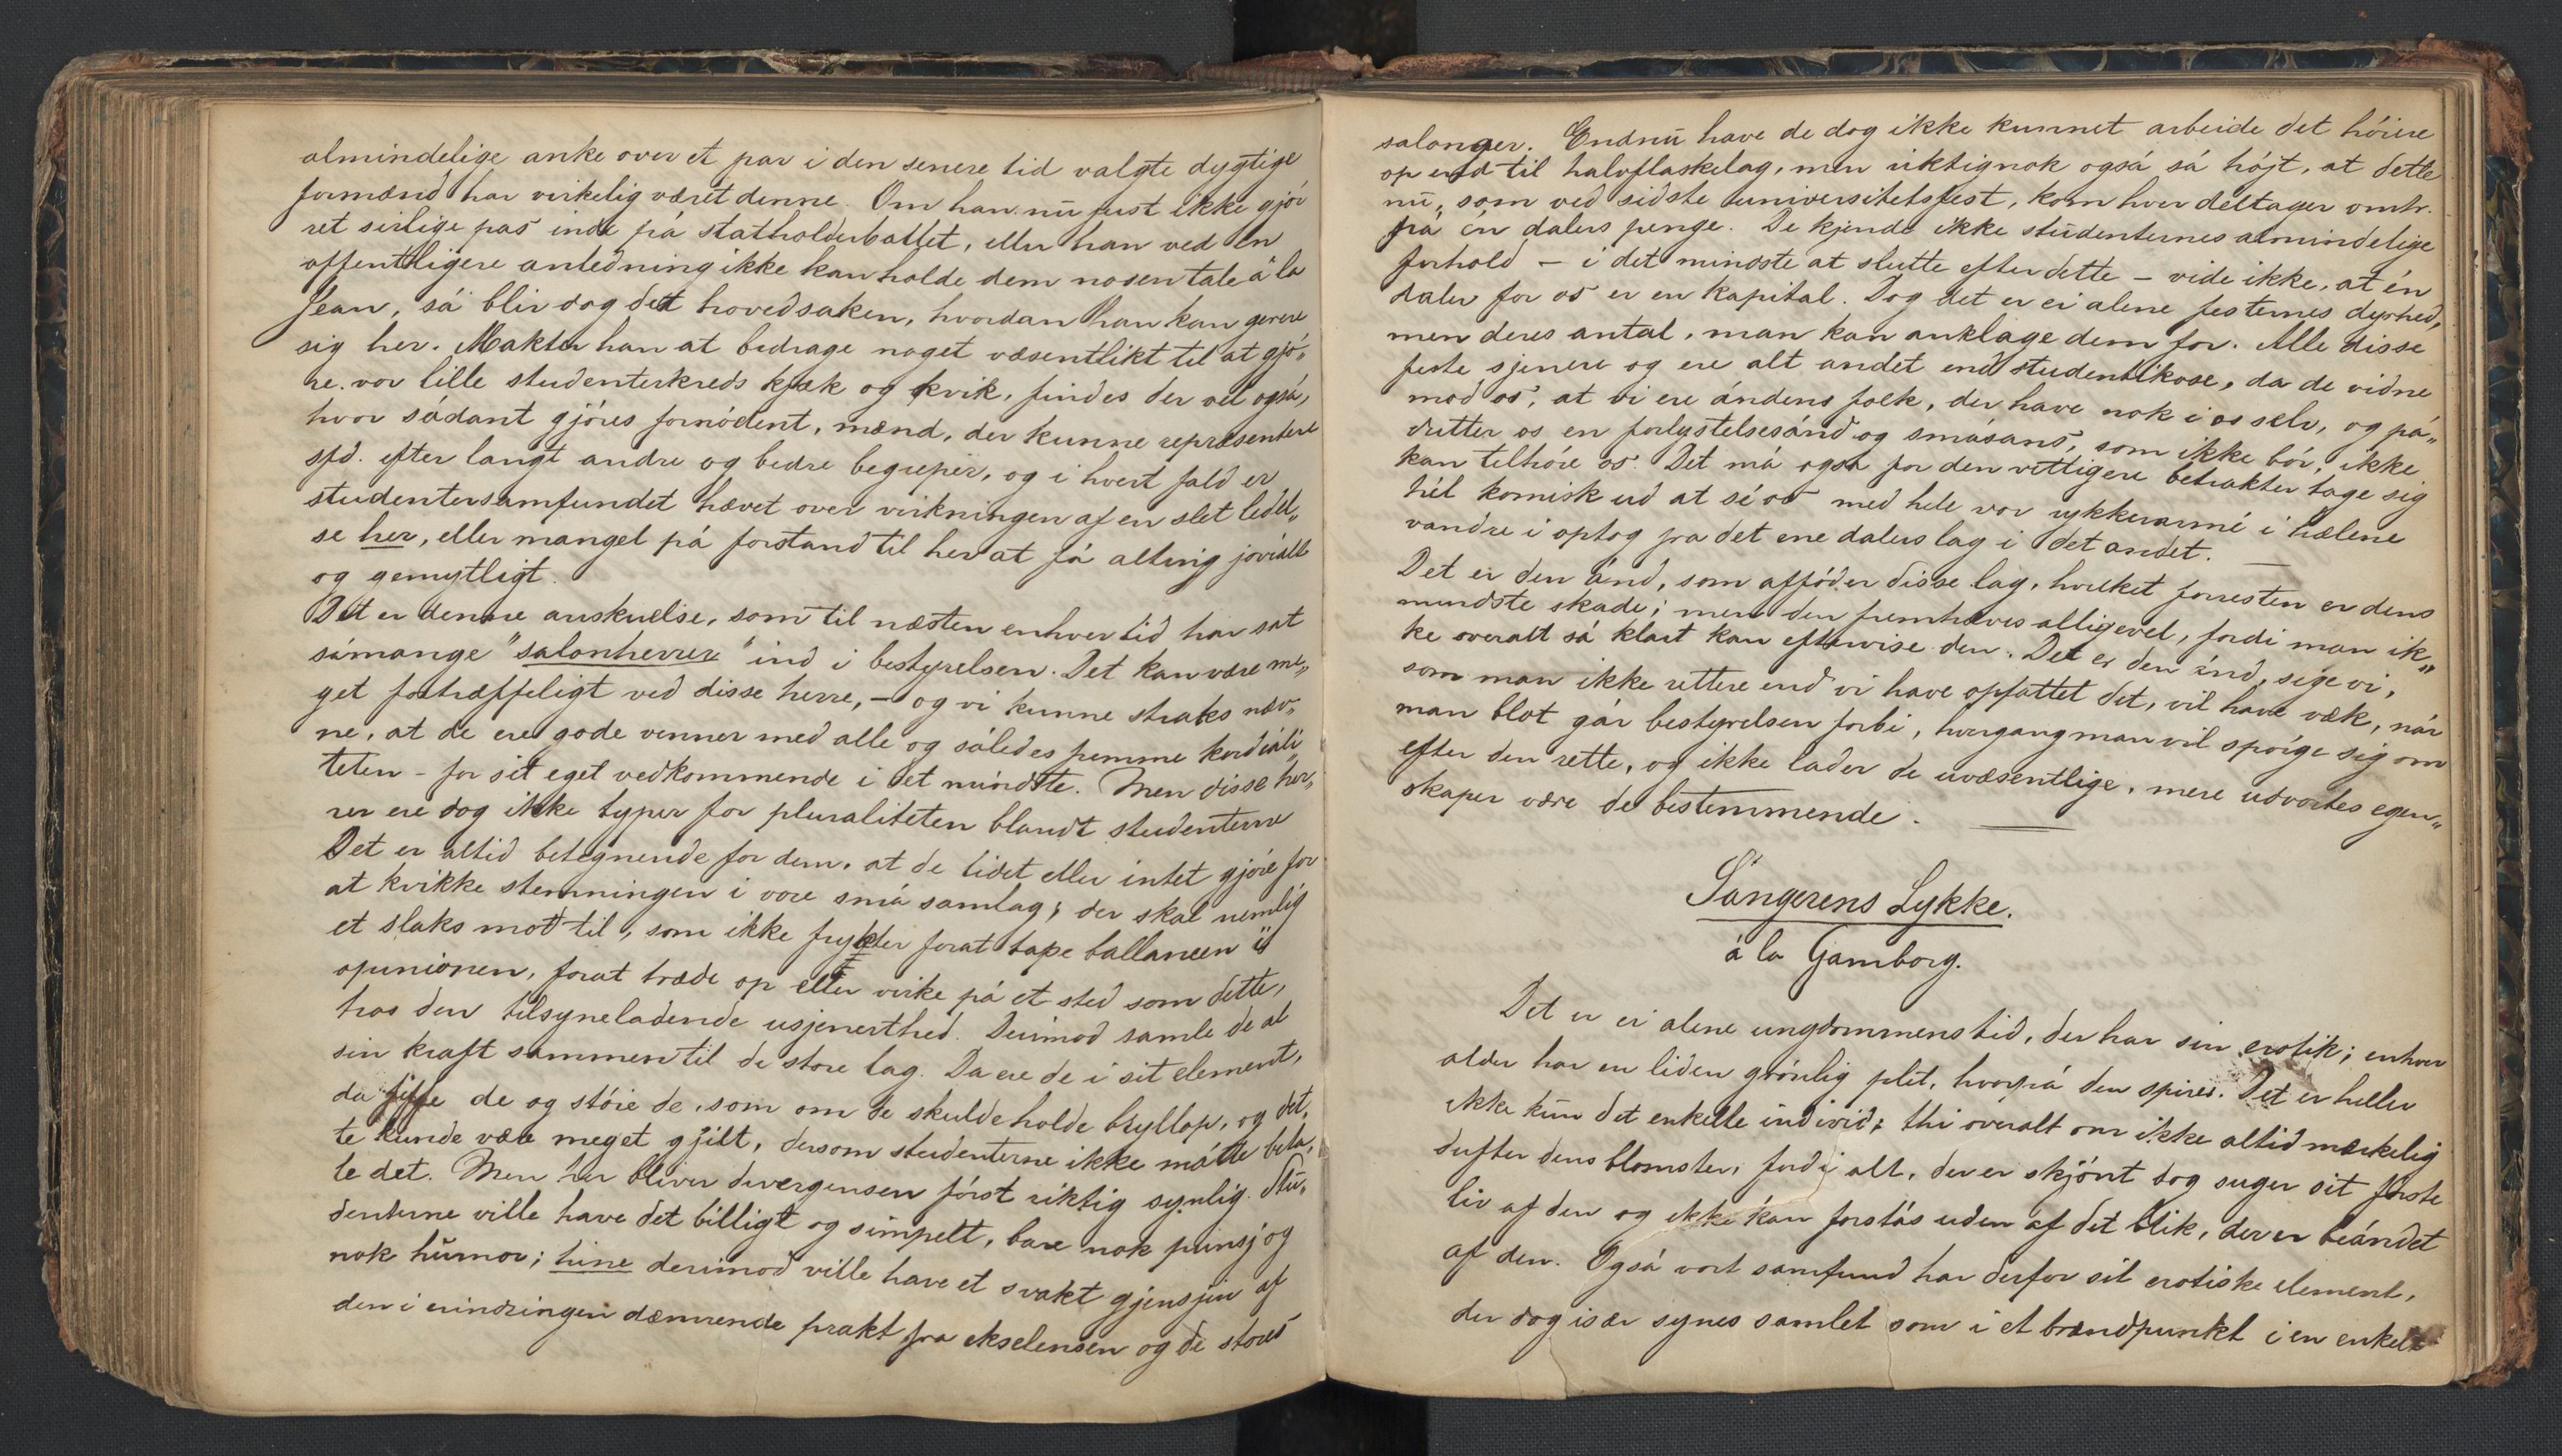 almindelige anke over et par i den senere tid valgte dygtige
formænd har virkelig været denne. Om han nu just ikke gjør
ret sirlige pas inde på statholderballet, eller han ved en
offentligere anledning ikke kan holde dem nosen tale à la
Jean, så blir dog det hovedsaken, hvordan han kan gerere
sig her. Makter han at bedrage noget væsentlikt til at gjø„
re vor lille studenterkreds kjæk og kvik, findes der vel også,
hvor sådant gjøres fornødent, mænd, der kunne repræsentere
sfd. efter langt andre og bedre begreper, og i hvert fald er
studentersamfundet hævet over virkningen af en slet ledel„
se her, eller mangel på forstand til her at få alting jovialt
og gemytligt.
Det er denne anskuelse, som til næsten enhver tid har sat
såmange "salonherrer" ind i bestyrelsen. Det kan være me„
get fortræffeligt ved disse herre, – og vi kunne straks næv„
ne, at de ere gode venner med alle og således fremme kordiali„
teten – for sit eget vedkommende i det mindste. Men disse her„
rer ere dog ikke typer for pluraliteten blandt studenterne
Det er altid betegnende for dem, at de lidet eller intet gjøre for
at kvikke stemningen i vore små samlag; der skal nemlig
et slaks mod til, som ikke frykter forat tape ballancen i
opinionen, forat træde op eller virke på et sted som dette,
hos den tilsyneladende usjenerthed. Derimod samle de al
sin kraft sammen til de store lag. Da ere de i sit element,
da fiffe de og støie de, som om de skulde holde bryllop, og det„
te kunde være meget gjilt, dersom studenterne ikke måtte beta„
le det. Men her bliver divergensen først riktig synlig. Stu„
denterne ville have det billigt og simpelt, bare nok punsj og
nok humor; hine derimod ville have et svakt gjensjin af
den i erindringen dæmrende prakt fra ekselensen og de stores
salonger. Endnu have de dog ikke kunnet arbeide det høiere
op end til halvflaskelag, men riktignok også så højt, at dette
nu, som ved sidste universitetsfest, kom hver deltager omtr.
på én dalers penge. De kjende ikke studenternes almindelige
forhold – i det mindste at slutte efter dette – vide ikke, at én
daler for os er en kapital. Dog det er ei alene festernes dyrhed,
men deres antal, man kan anklage dem for. Alle disse
feste sjenere og ere alt andet end studentikose, da de vidne
mod os, at vi ere åndens folk, der have nok i os selv, og på„
dutter os en forlystelsesånd og småsans, som ikke bør, ikke
kan tilhøre os. Det må også for den vittigere betrakter tage sig
hél komisk ud at sé os med hele vor rykkerarmé i hælene
vandre i optog fra det ene dalers lag i det andet. —
Det er den ånd, som afføder disse lag, hvilket forresten er dens
mindste skade; men den fremhæves alligevel, fordi man ik„
ke overalt så klart kan eftervise den. Det er den ånd, sige vi,
som man ikke rettere end vi have opfattet det, vil have væk, når
man blot går bestyrelsen forbi, hvergang man vil spørge sig om
efter den rette, og ikke lader de uvæsentlige, mere udvortes egen„
skaper være de bestemmende.
Sångerens Lykke.
à la Gamborg.
Det er ei alene ungdommens tid, der har sin erotik; enhver
alder har en liden grønlig plet, hvorpå den spirer. Det er heller
ikke kun det enkelte individ; thi overalt om ikke altid mærkelig
dufter dens blomster, fordi alt, der er skjønt dog suger sit første
liv af den og ikke kan forstås uden af det blik, der er beåndet
af den. Også vort samfund har derfor sit erotiske element,
der dog især synes samlet som i et brændpunkt i en enkelt